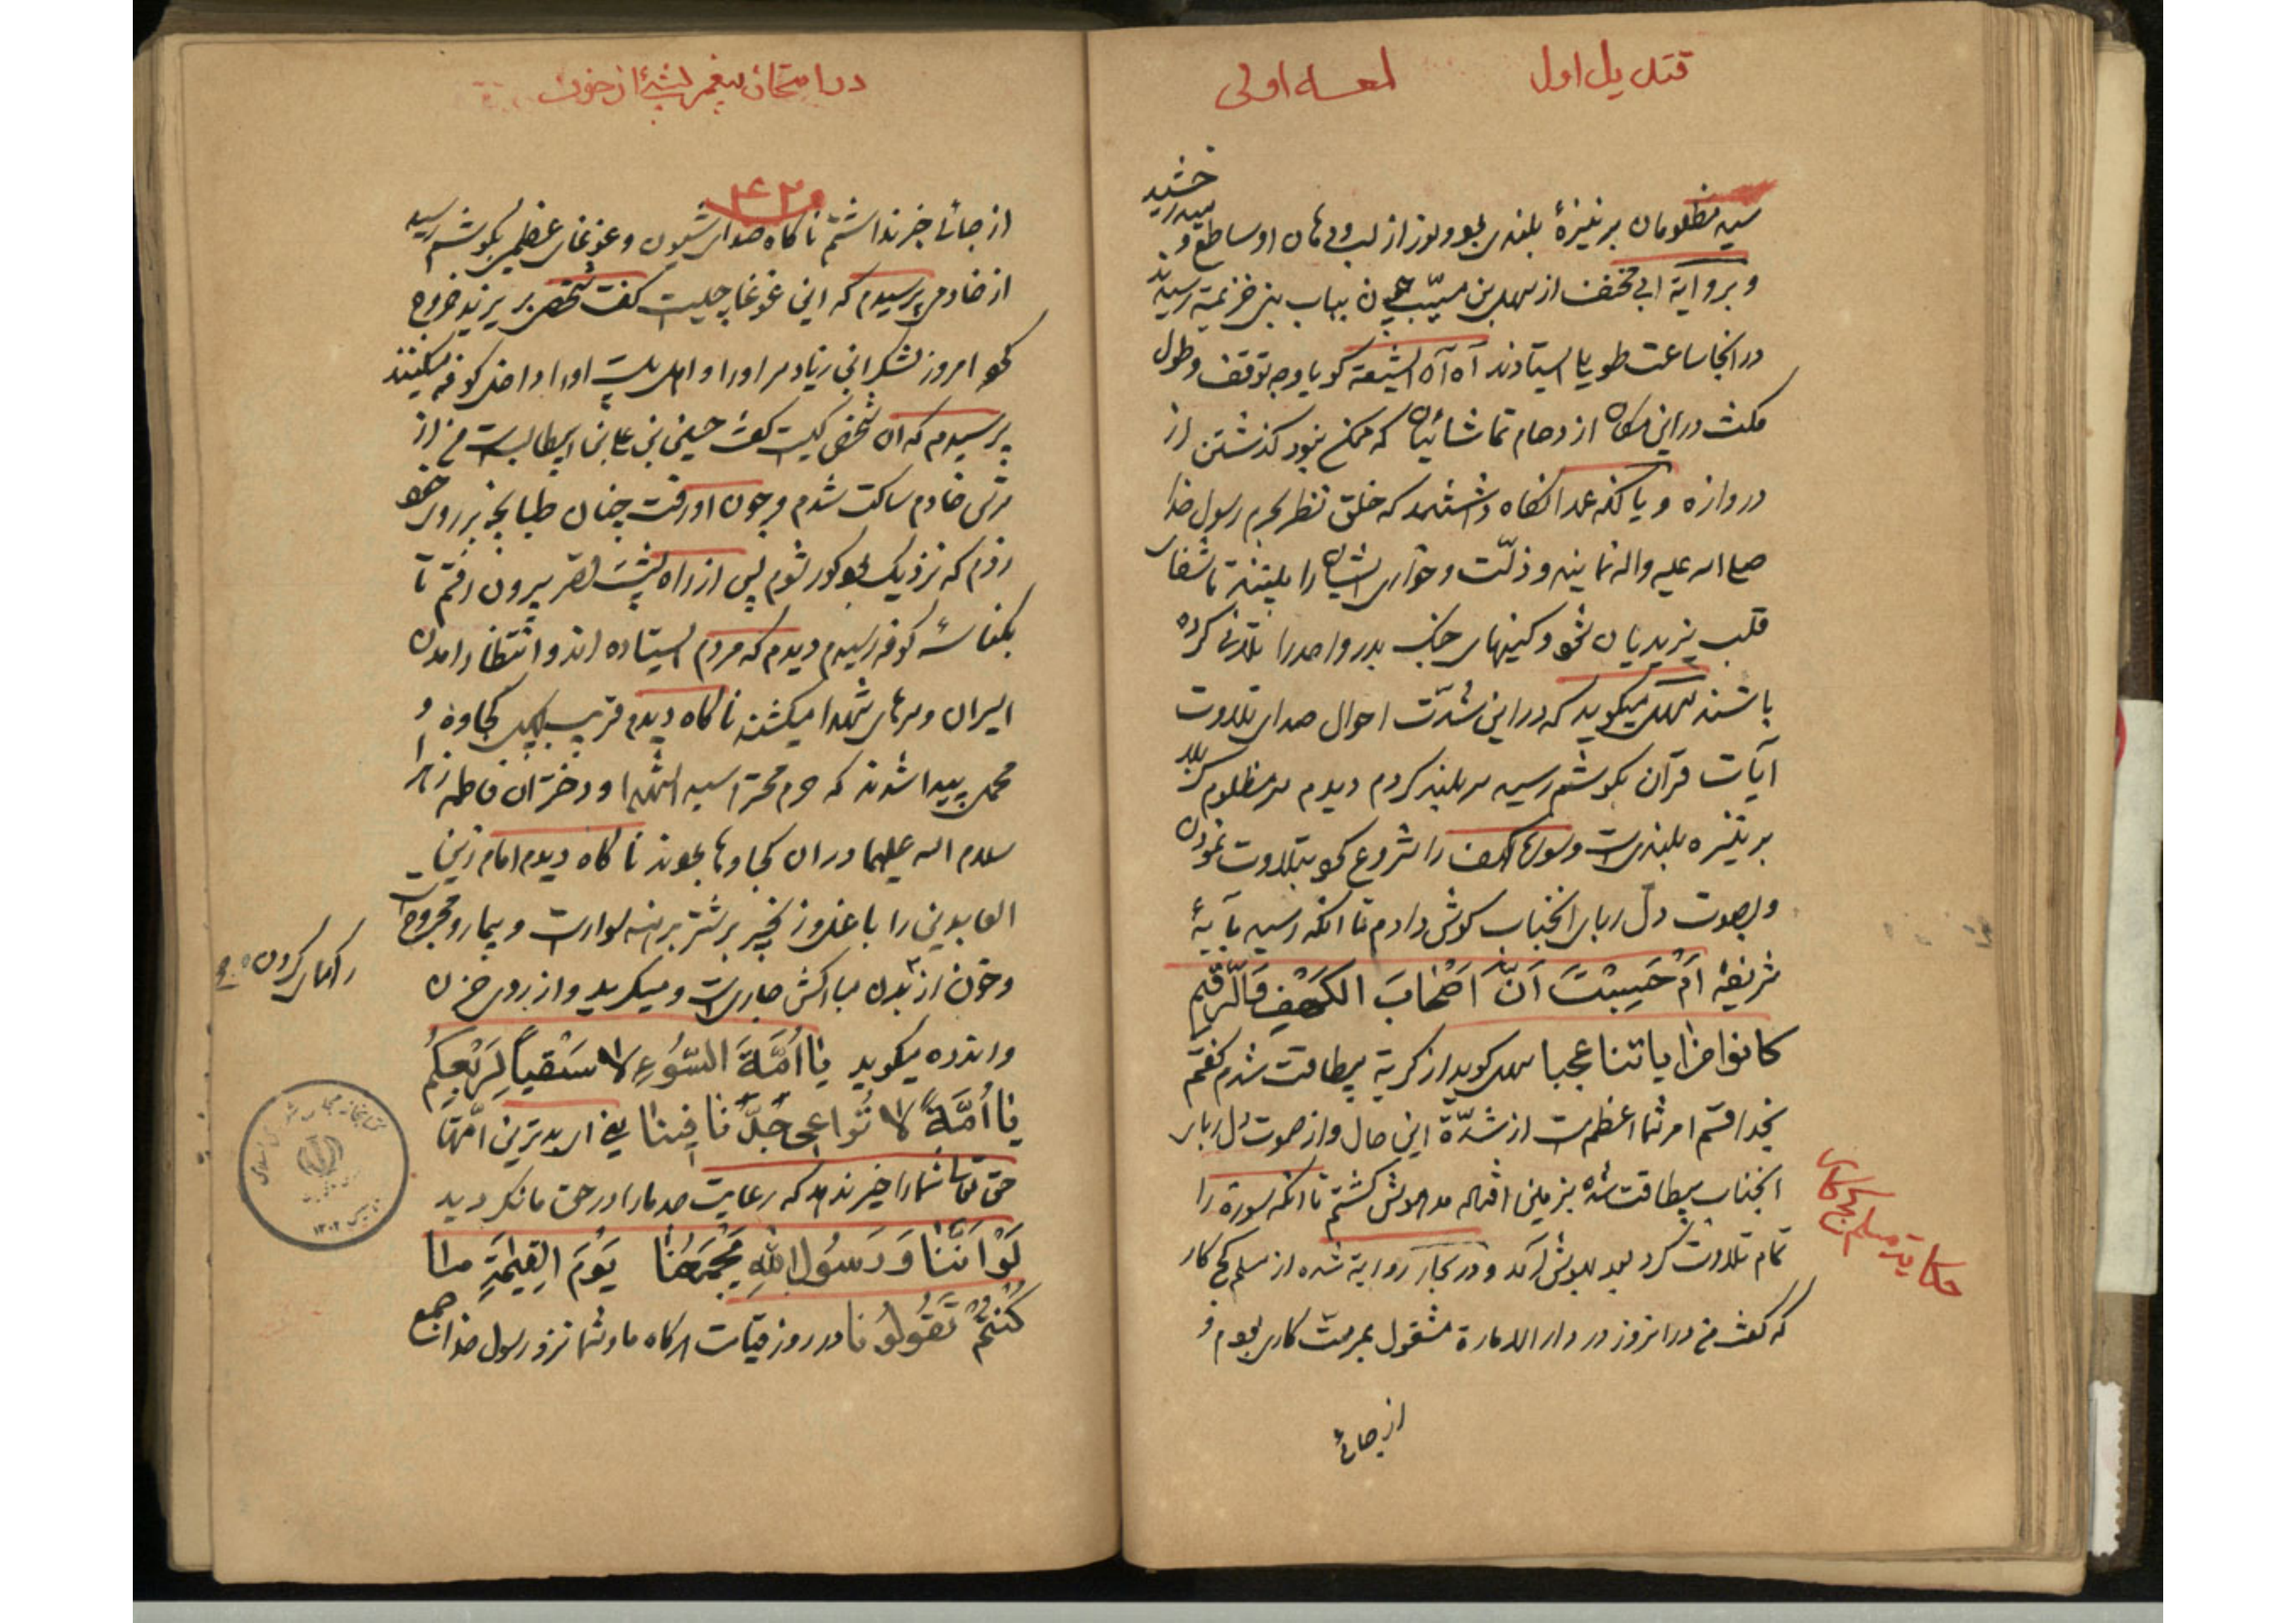 قندیل اول
لمعه اولی
سید مظلومان بر نیزۀ بلندی بود و نور از لب و دهان او ساطع و
میدرخشید
و بروایة ابی مخنف از سهل بن مسیّب چون بباب بنی خزیمة رسیدند
در انجا ساعت طویل ایستادند آه آه الشیعة کویا وجه توقف و طول
مکث در این مکان ازدحام تماشائیان که ممکن نبود کذشتن از
دروازه و یا انکه عمدا نکاه داشتند که خلق نظر بحرم رسول خدا
صلی الله علیه واله نمایند و ذلّت و خواری ایشان را ببینند تا شفای
قلب یزیدیان شود و کینهای جنک بدر و احد را تلافی کرده
باشند سهل میکوید که در این شدّت احوال صدای تلاوت
آیات قرآن بکوشم رسید سر بلند کردم دیدم سر مظلوم کربلا
بر نیزه بلندیست و سوره کهف را شروع کرده بتلاوت نمودن
و بصوت دل ربای انجناب کوش دادم تا انکه رسید بآیهٔ
شریفه اَمْ حَسِبْتَ اَنَّ اَصْحابَ الکَهْفِ وَالرَّقیمِ
کانوا من ایاتنا عجبا سهل کوید از کریه بیطاقت شدم کفتم
بخدا قسم امر شما اعظم است از شدّة این حال و از صوت دل ربای
انجناب بیطاقت شده بزمین افتاده مدهوش کشتم تا انکه سورة را
تمام تلاوت کرد بعد بهوش آمد و در بحار روایة شده از مسلم کچ کار
حکایة مسلم کچ کار
که کفت من در انروز در دار الاماره مشغول بمرمت کاری بودم و
از جائی
در امتحان پیغمبر
از جائی خبر نداشتم ناکاه صدای شیون و غوغای عظیمی بکوشم رسید
از خادمی پرسیدم که این غوغا چیست کفت شخصی بر یزید خروج
کرده امروز لشکر ابن زیاد سر او را و اهل بیت او را داخل کوفه میکنند
پرسیدم که ان شخص کیست کفت حسین بن علی بن ابیطالبست من از
ترس خادم ساکت شدم و چون او رفت چنان طپانچه بر روی خود
زدم که نزدیک بود کور شوم پس از راه پشت قصر بیرون رفتم تا
بکناسهٔ کوفه رسیدم دیدم که مردم ایستاده اند و انتظار امدن
اسیران و سرهای شهدا میکشند ناکاه دیدم قریب بچهل کجاوه و
محمل پیدا شدند که حرم محترم سید الشهدا و دختران فاطمه زهرا
سلام الله علیهما در ان کجاوها بودند ناکاه دیدم امام زین
العابدین را با غل و زنجیر بر شتر برهنه سوار است و بیمار و مجروح است
و خون از بدن مبارکش جاریست و میکرید و از روی حزن
و اندوه میکوید یا اُمَّةَ السُّوءِ لا سَقْیاً لِرَبْعِکُمْ
یا اُمَّةً لا تُراعی جَدَّنا فینا یعنی ای بدترین امّتها
حق تعالی شما را خیر ندهد که رعایت جد ما را در حق ما نکردید
لَوْ اَنَّنا وَ رَسُولُ اللهِ یَجْمَعُنا یَوْمَ القِیمَةِ ما
کُنْتُمْ تَقُولُونا در روز قیامت هر کاه ما و شما نزد رسول خدا جمع